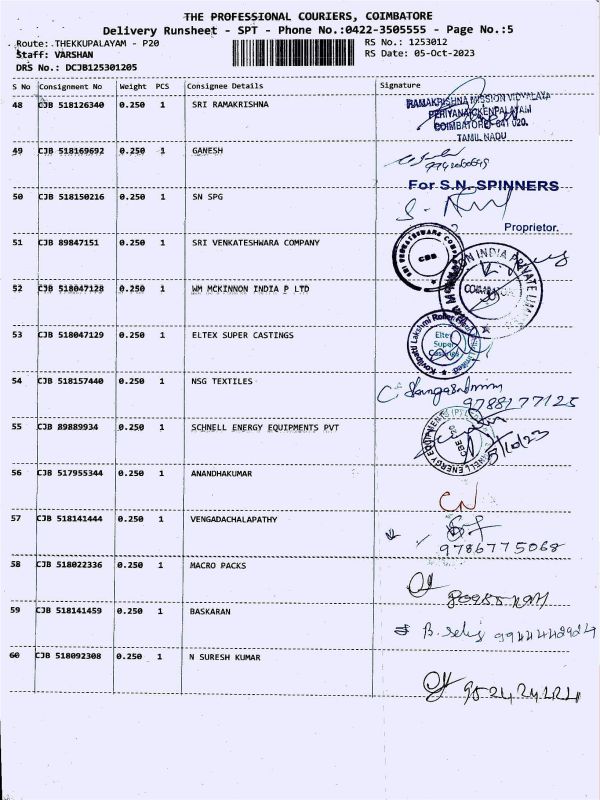 THE PROFESSIONAL COURIERS, COIMBATORE
Delivery Runsheet - SPT - Phone No.:0422-3505555 - Page No.:5
Route: THEKKUPALAYAM - P20
RS No.: 1253012
Staff: VARSHAN
RS Date: 05-Oct-2023
DRS No.: DCJB125301205
S No Consignment No Weight PCS Consignee Details Signature
48 CJB 518126340 0.250 1 SRI RAMAKRISHNA
RAMAKRISHNA MISSION VIDYALAYA
PERIYANAICKENPALAYAM
COIMBATORE - 641 020.
TAMIL NADU
49 CJB 518169692 0.250 1 GANESH
50 CJB 518150216 0.250 1 SN SPG
For S.N. SPINNERS
Proprietor.
51 CJB 89847151 0.250 1 SRI VENKATESHWARA COMPANY
SRI VENKATESHWARA COMP
CBE
52 CJB 518047128 0.250 1 WM MCKINNON INDIA P LTD
53 CJB 518047129 0.250 1 ELTEX SUPER CASTINGS
Eltex
Super
54 CJB 518157440 0.250 1 NSG TEXTILES
9788177125
55 CJB 89889934 0.250 1 SCHNELL ENERGY EQUIPMENTS PVT
5/10/23
56 CJB 517955344 0.250 1 ANANDHAKUMAR
57 CJB 518141444 0.250 1 VENGADACHALAPATHY
9786775068
58 CJB 518022336 0.250 1 MACRO PACKS
59 CJB 518141459 0.250 1 BASKARAN
60 CJB 518092308 0.250 1 N SURESH KUMAR